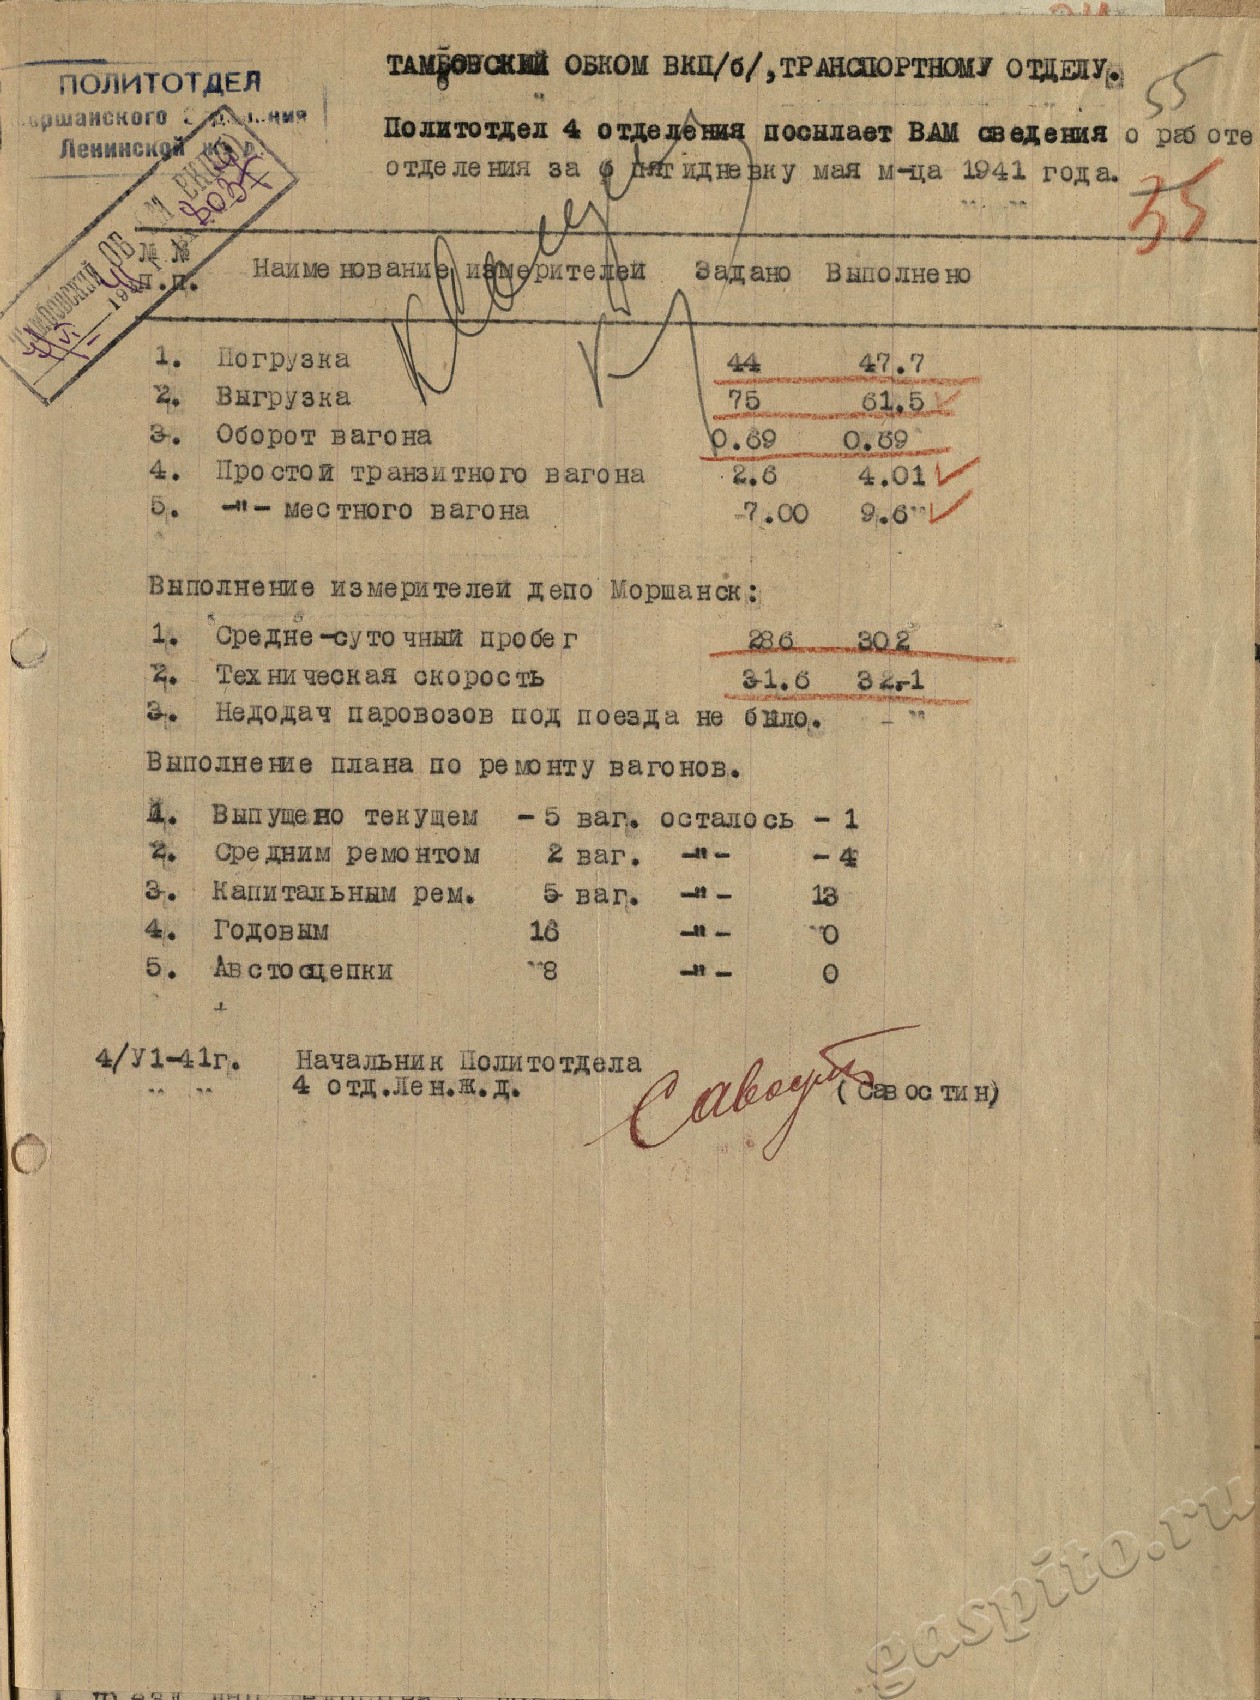 ПОЛИТОТДЕЛ
Моршанского отделения
Ленинской ж.д.
ТАМБОВСКИЙ ОБКОМ ВКП/б/,ТРАНСПОРТНОМУ ОТДЕЛУ.
55
Политотдел 4 отделения посылает ВАМ сведения о работе
отделения за 6 пятидневку мая м-ца 1941 года.
55
ТАМБОВСКИЙ ОБКОМ ВКП(б)
№ №
п.п. Наименование измерителей Задано Выполнено
1. Погрузка 44 47.7
2. Выгрузка 75 61.5
3. Оборот вагона 0.69 0.69
4. Простой транзитного вагона 2.6 4.01
5. -"- местного вагона 7.00 9.6
Выполнение измерителей депо Моршанск:
1. Средне-суточный пробег 286 302
2. Техническая скорость 31.6 32.1
3. Недодач паровозов под поезда не было.
Выполнение плана по ремонту вагонов.
1. Выпущено текущем - 5 ваг. осталось - 1
2. Средним ремонтом 2 ваг. -"- - 4
3. Капитальным рем. 5 ваг. -"- 13
4. Годовым 16 -"- 0
5. Автосцепки 8 -"- 0
4/У1-41г. Начальник Политотдела
4 отд.Лен.ж.д. (Савостин)
gaspito.ru